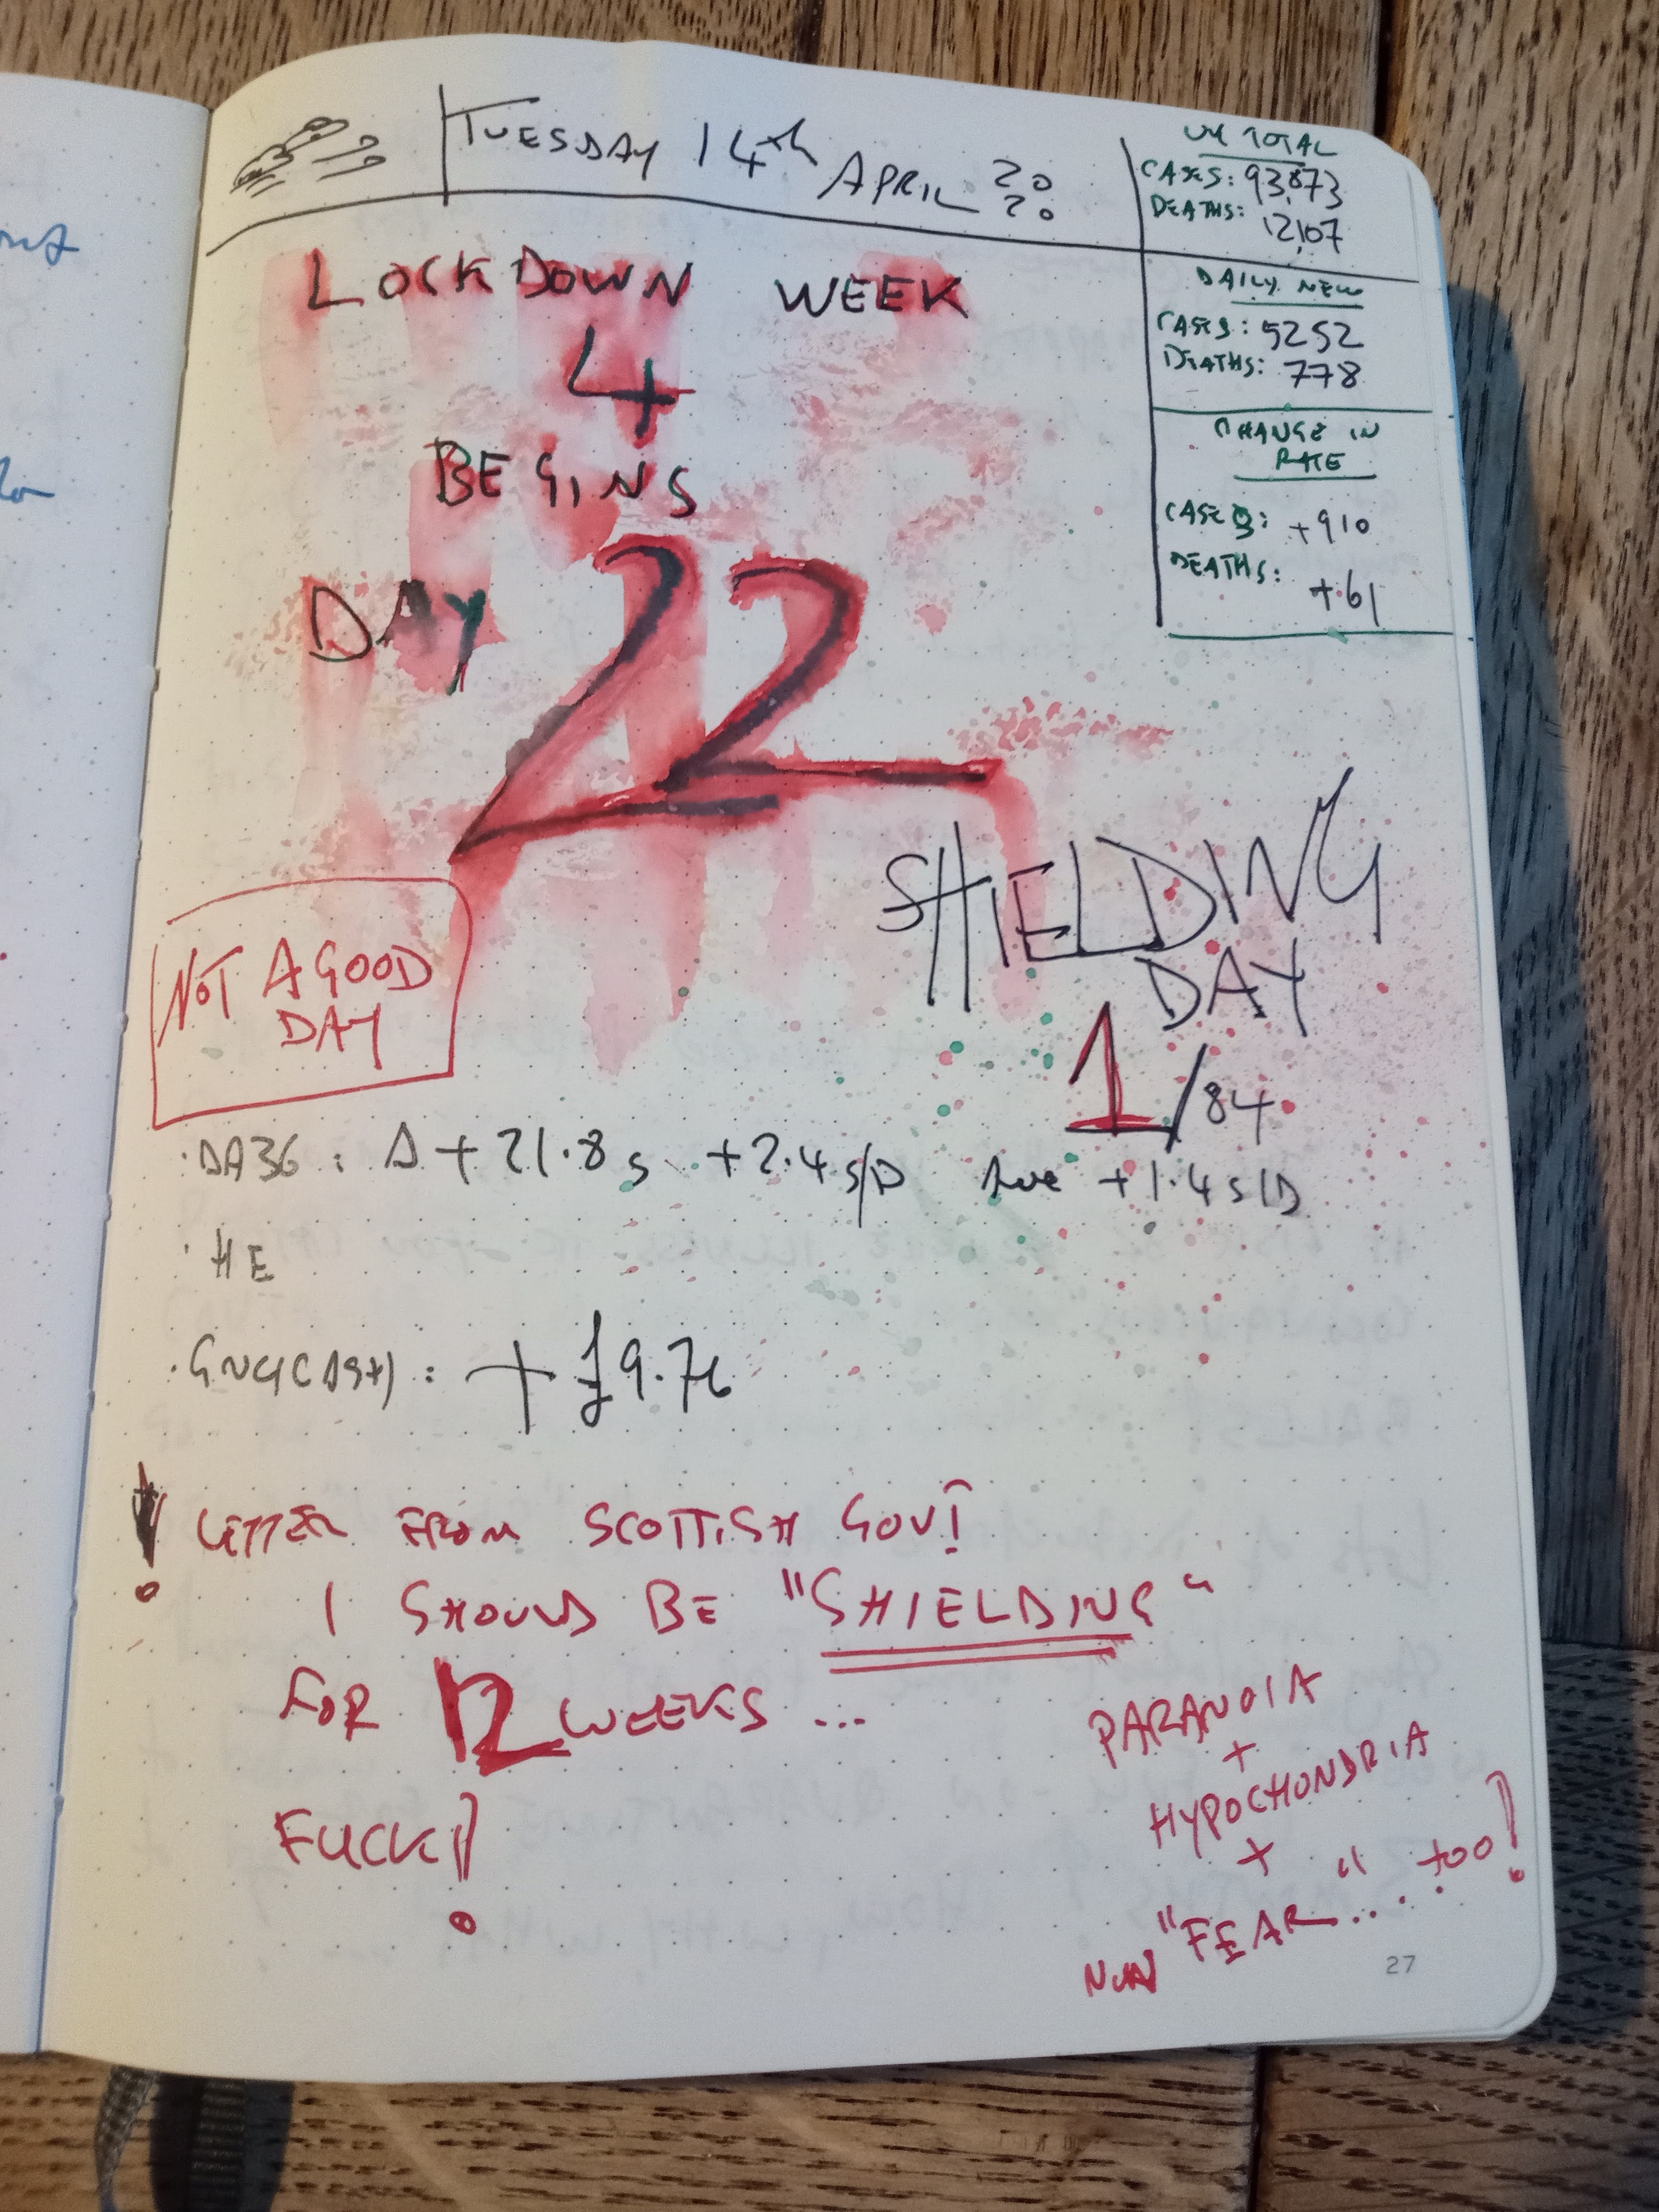 TUESDAY 14th APRIL 2020
UK TOTAL
CASES: 93,873
DEATHS: 12,107
DAILY NEW
CASES: 5252
DEATHS: 778
CHANGE IN
RATE
CASES: +910
DEATHS: +61
LOCKDOWN WEEK
4
BEGINS
DAY 22
SHIELDING
DAY
1/84
NOT A GOOD
DAY
·DA36: Δ+21.8s +2.4s/D Ave +1.4s/D
·HE
+£9.76
! LETTER FROM SCOTTISH GOVT
I SHOULD BE "SHIELDING"
FOR 12 WEEKS...
FUCK!!
PARANOIA
+
HYPOCHONDRIA
+
NOW "FEAR"..... too!
27